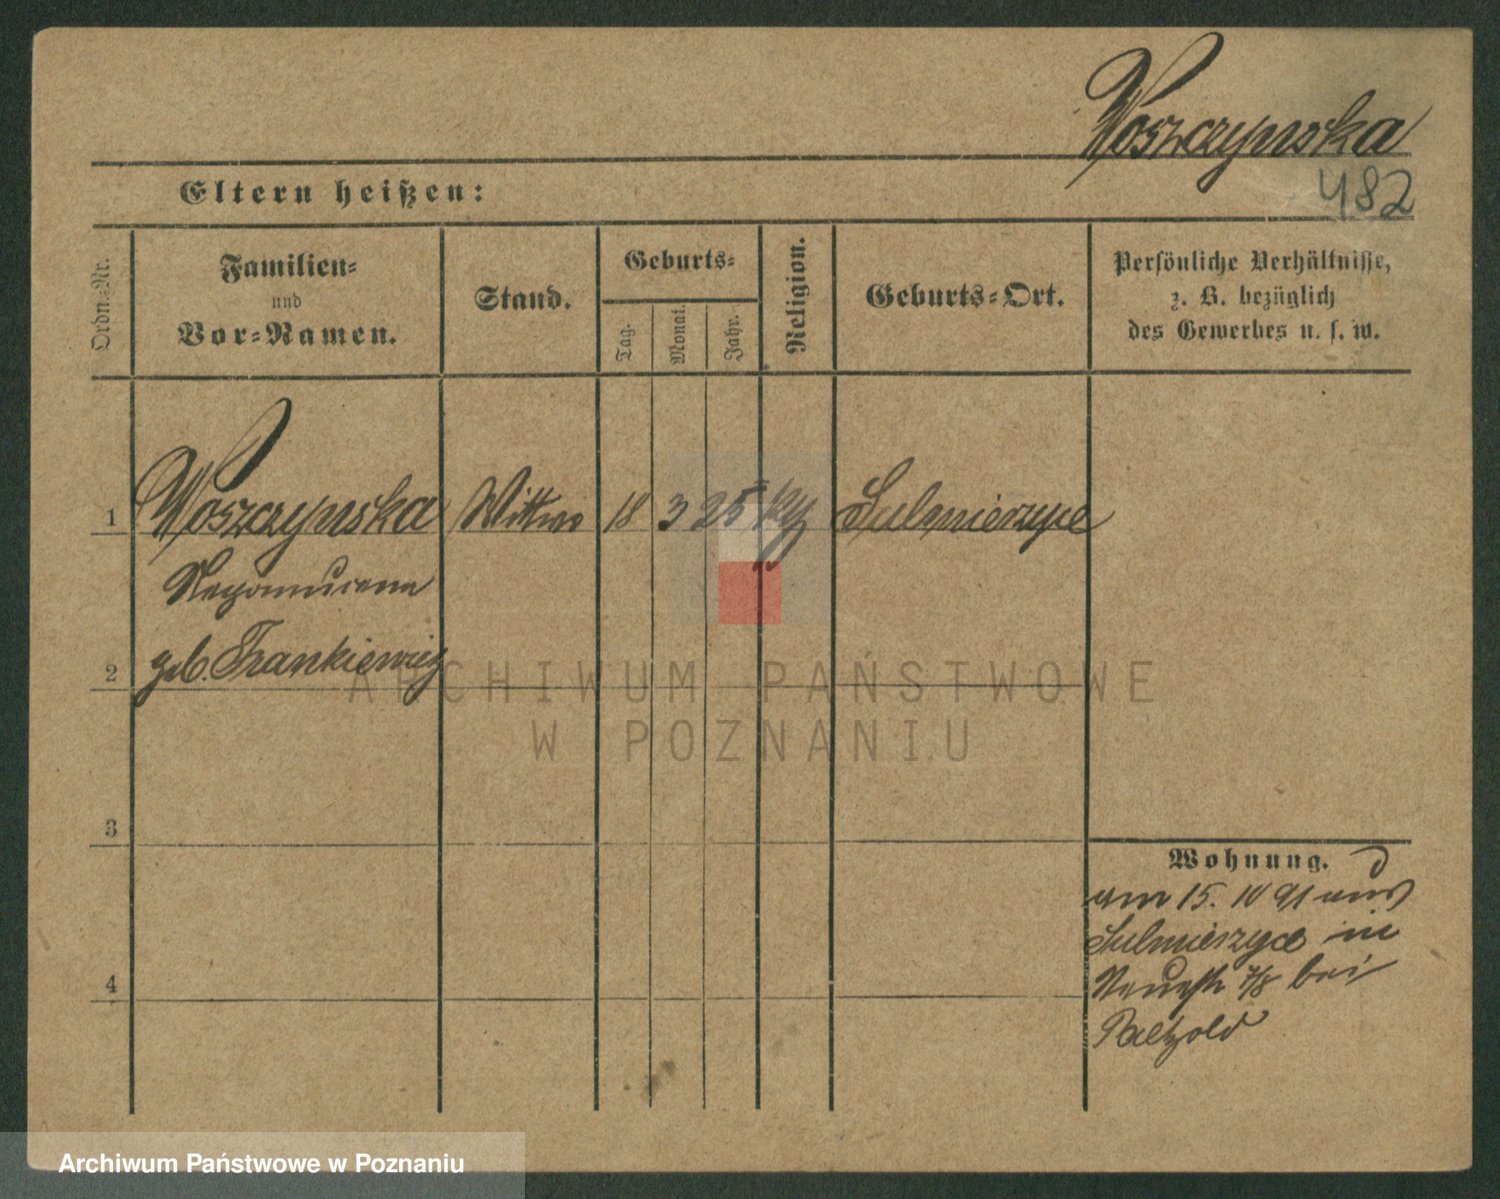 Woszczynska
482
Eltern heißen:
Ordn.-Nr.
Familien-
und
Vor-Namen.
Stand.
Geburts-
Tag.
Monat.
Jahr.
Religion.
Geburts-Ort.
Persönliche Verhältnisse,
z. B. bezüglich
des Gewerbes u. s. w.
1
Woszczynska Wittwe 18 3 25 Sulmierzyce
Nepomucena
2
geb. Frankiewicz
3
4
Wohnung.
am 15. 10 91 aus
Sulmierzyce in
7/8 bei
Paetzold
ARCHIWUM PAŃSTWOWE
W POZNANIU
Archiwum Państwowe w Poznaniu